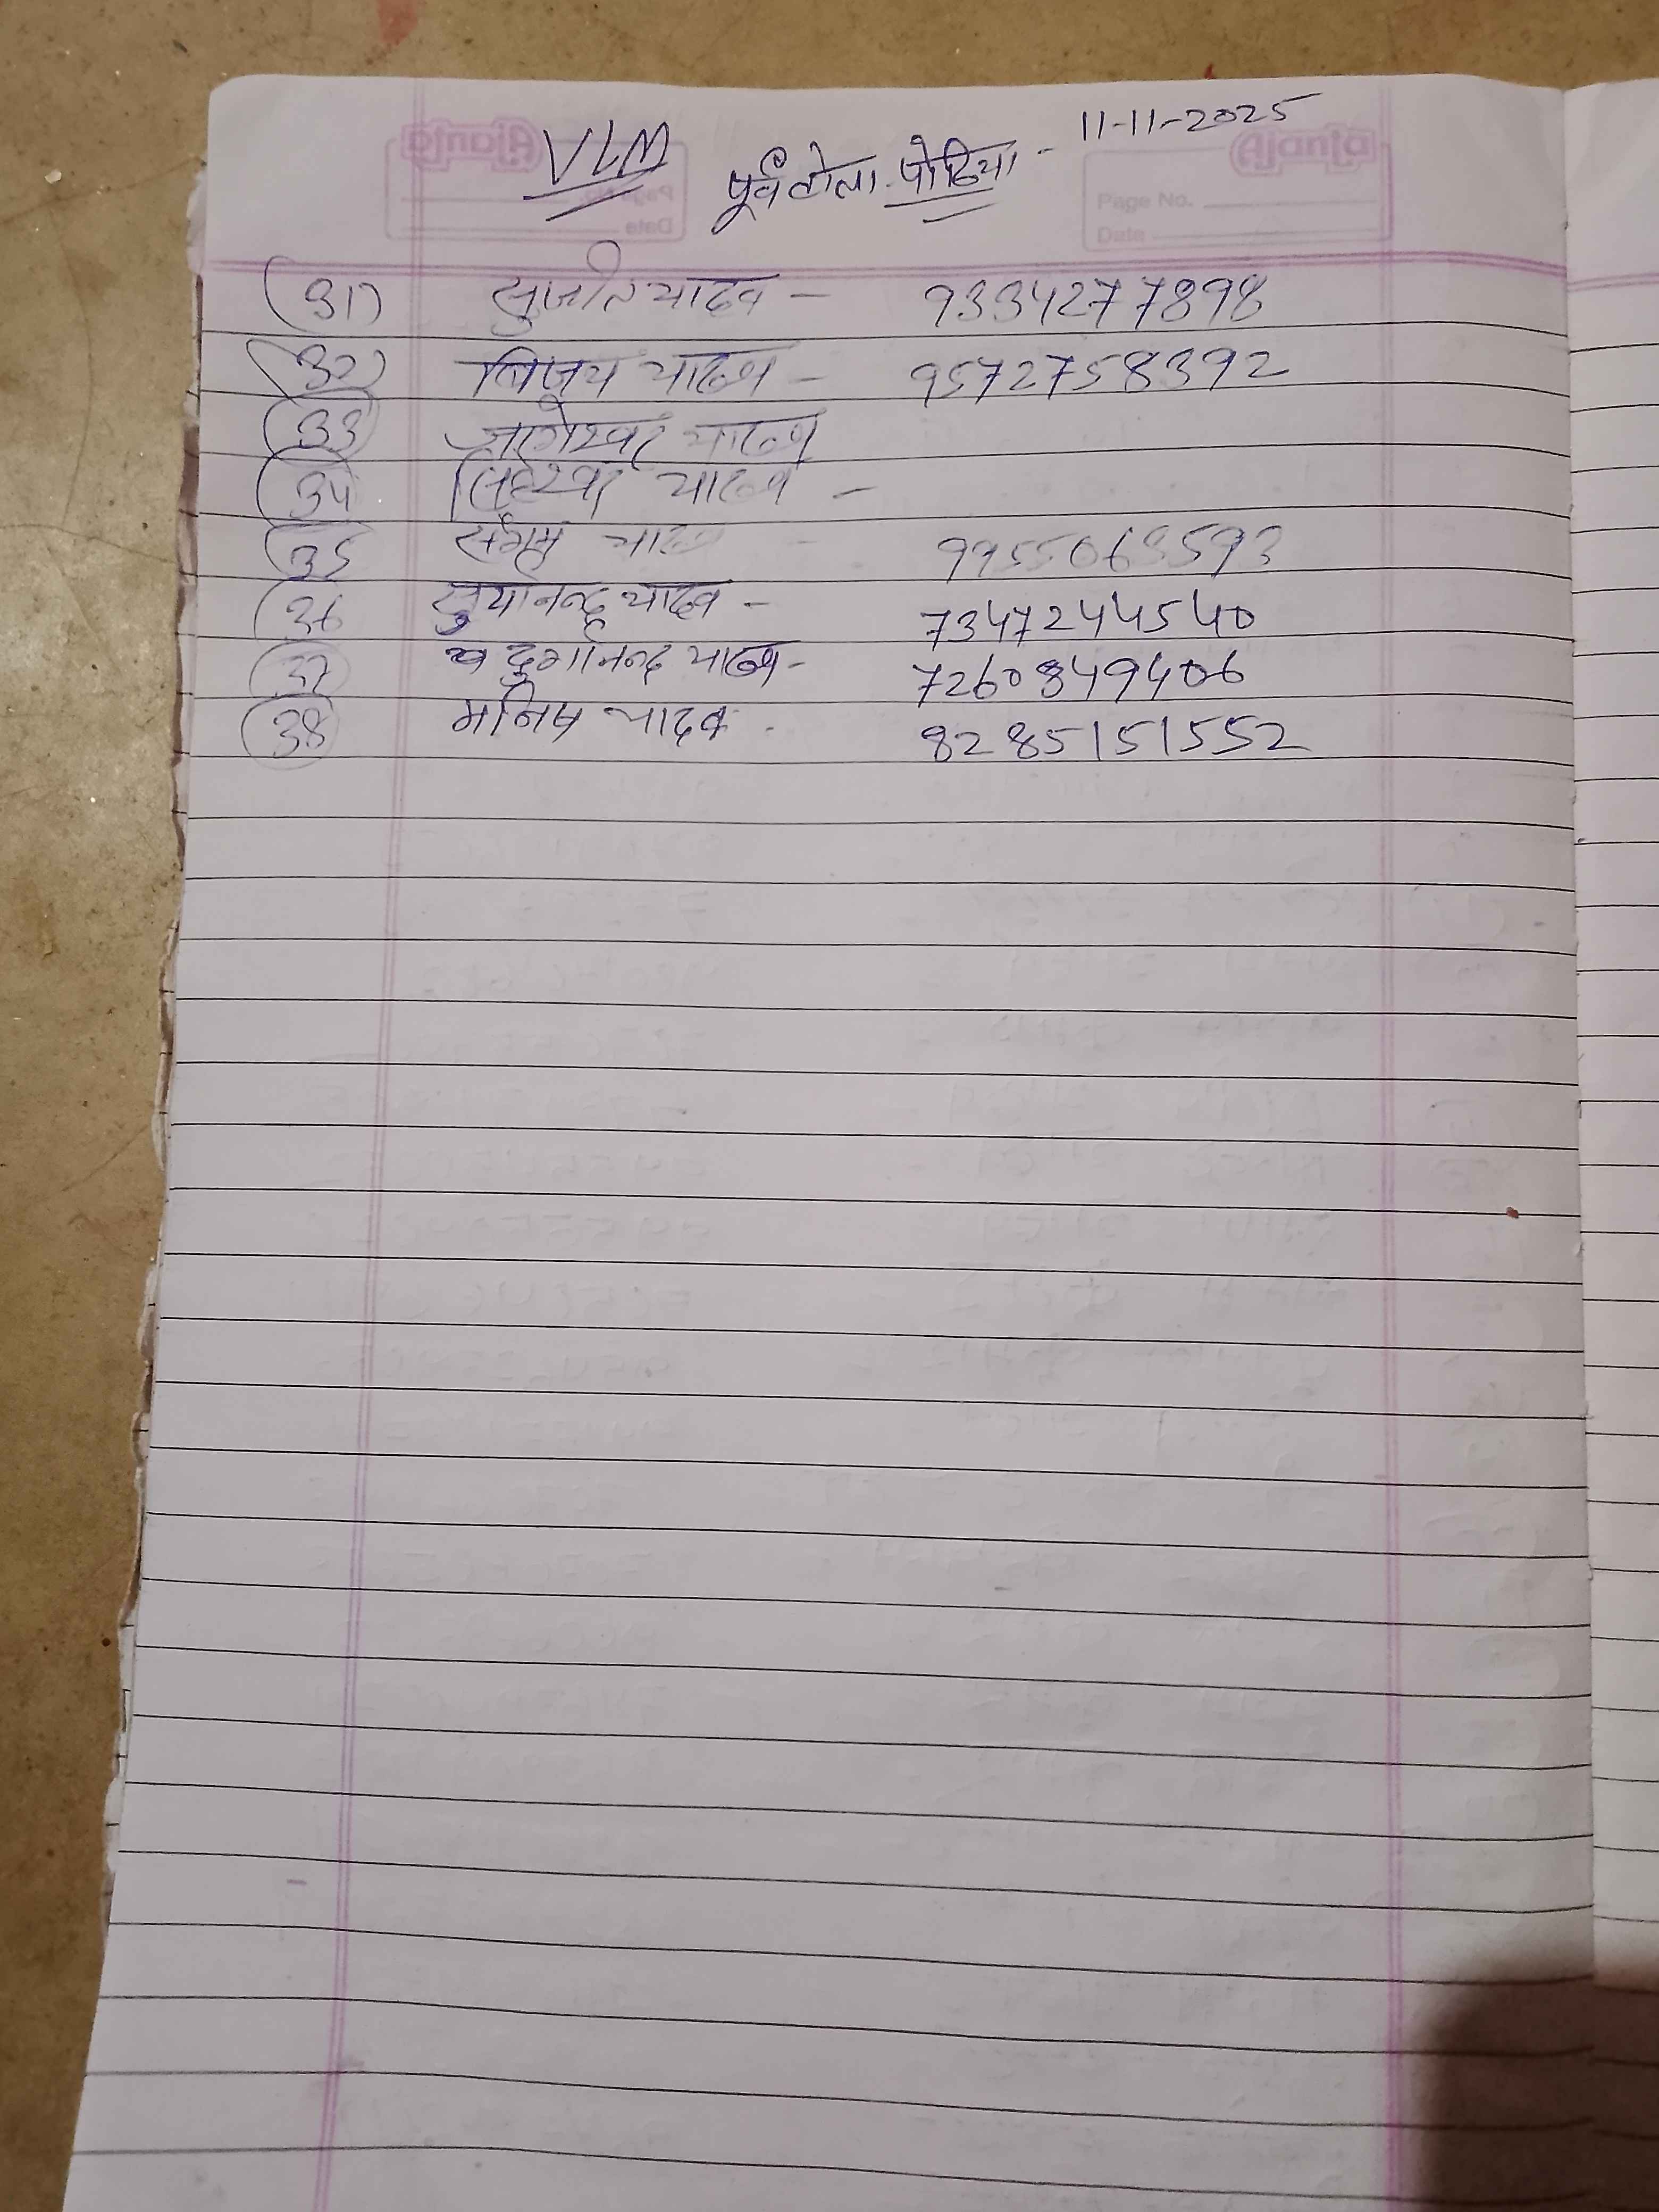 VLM
पूर्व टोला. पोठिया - 11-11-2025
Ajanta
Page No.
Date
31) सुजीत यादव - 9334277898
32) विजय यादव - 9572758392
33 जागेश्वर यादव
34 यादव -
35 यादव - 9955063593
36 सुर्यानन्द यादव - 7347244540
37 दुर्गानन्द यादव - 7260849406
38 मनिष यादव - 8285151552